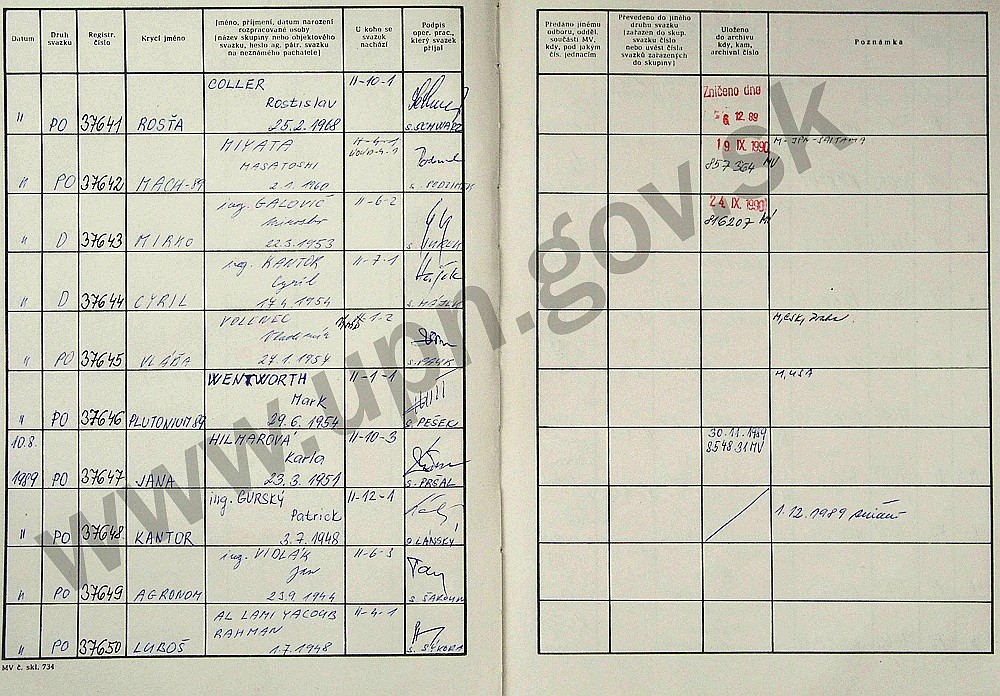 Datum
Druh
svazku
Registr.
číslo
Krycí jméno
Jméno, příjmení, datum narození
rozpracované osoby
(název skupiny nebo objektového
svazku, heslo ag. pátr. svazku
na neznámého pachatele)
U koho se
svazek
nachází
Podpis
oper. prac.,
který svazek
přijal
Předáno jinému
odboru, odděl.
součásti MV,
kdy, pod jakým
čís. jednacím
Převedeno do jiného
druhu svazku
(zařazen do skup.
svazku číslo
nebo uvést čísla
svazků zařazených
do skupiny)
Uloženo
do archivu
kdy, kam,
archivní číslo
Poznámka
COLLER II-10-1
Rostislav
" PO 37641 ROSŤA 25.2.1968 s. SCHWARZ
Zničeno dne
6. 12. 89
MIYATA II-4-1
MASATOSHI
" PO 37642 MACH-89 2.1.1960 s. PODZIMEK
19. IX. 1990 M-JPN-SAITAMA
857364 MV
ing. GALOVIČ II-6-2
" D 37643 MIRKO 22.3.1953
24. IX. 1990
816207 MV
ing. KANTOR II-7-1
Cyril
" D 37644 CYRIL 17.4.1954 s. HÁJEK
VOLENEC II-1-2
Vladimír
" PO 37645 VLÁĎA 27.1.1954
M, ČSR, Praha
WENTWORTH II-1-1
Mark
" PO 37646 PLUTONIUM 89 29.6.1954 s. PEŠEK
M, USA
10.8. HILMAROVÁ II-10-3
Karla
1989 PO 37647 JANA 23.3.1951 s. PRŠAL
30.11.1989
854831 MV
ing. GURSKÝ II-12-1
Patrick
" PO 37648 KANTOR 3.7.1948 s. LÁNSKÝ
1.12.1989
ing. VIDLÁK II-6-3
Jan
" PO 37649 AGRONOM 23.9.1944 s. ŠAROUN
AL LAMI YACOUB II-4-1
RAHMAN
" PO 37650 LUBOŠ 1.7.1948 s. SÝKORA
MV č. skl. 734
www.upn.gov.sk